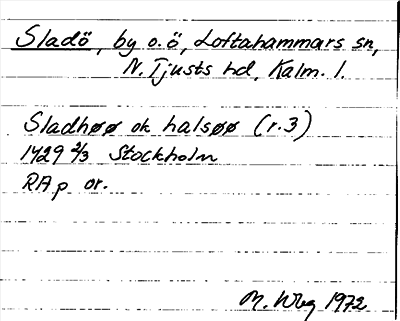 Sladö, by o. ö, Loftahammars sn,
N. Tjusts hd, Kalm. l.
Sladhøø ok halsøø (r. 3)
1429 2/3 Stockholm
RAp or.
M. Wbg 1972